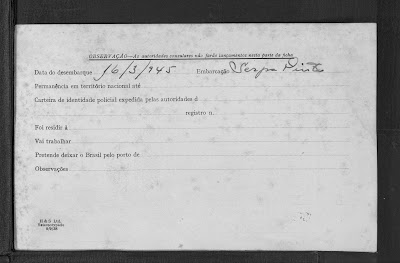 OBSERVAÇÃO—As autoridades consulares não farão lançamentos nesta parte da ficha
Data do desembarque 16/3/945 Embarcação Serpa Pinto
Permanência em território nacional até
Carteira de identidade policial expedida pelas autoridades d
registro n.
Foi residir á
Vai trabalhar
Pretende deixar o Brasil pelo porto de
Observações
H & S Ltd.